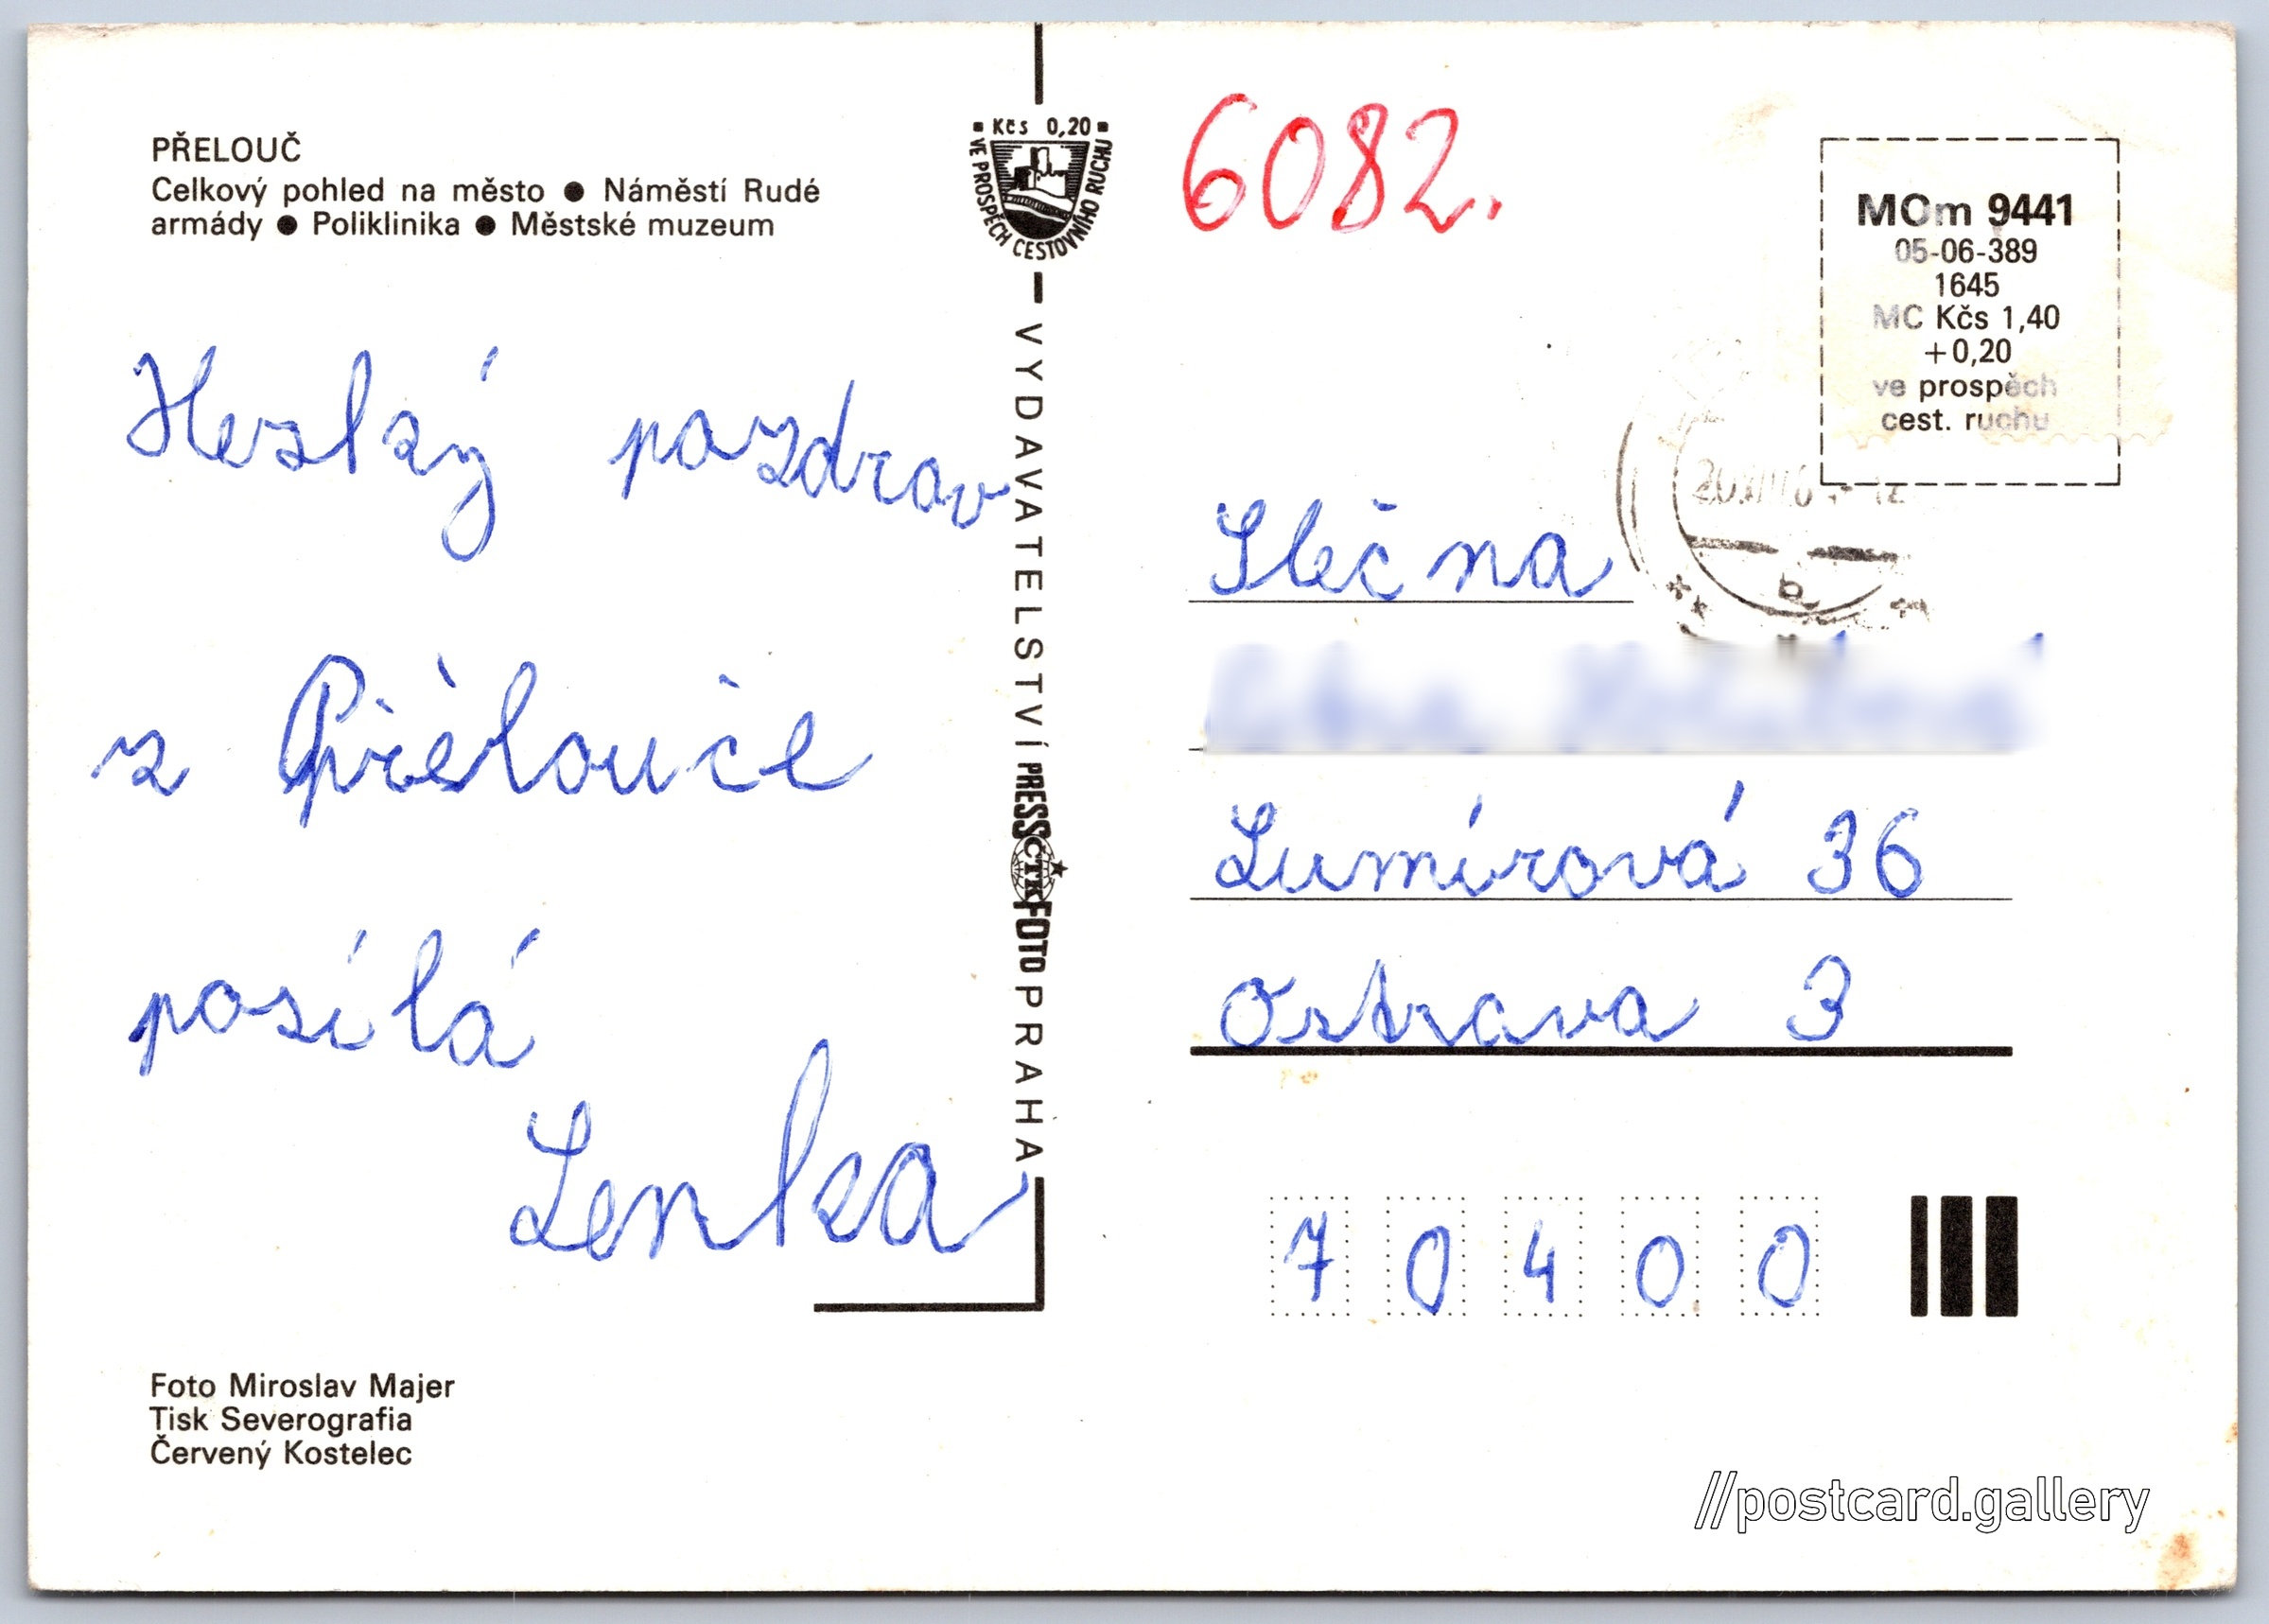 PŘELOUČ
Celkový pohled na město ● Náměstí Rudé
armády ● Poliklinika ● Městské muzeum
Hezký pozdrav
z Přelouče
posílá
Lenka
Foto Miroslav Majer
Tisk Severografia
Červený Kostelec
Kčs 0,20
VE PROSPĚCH CESTOVNÍHO RUCHU
VYDAVATELSTVÍ PRESSFOTO PRAHA
ČTK
6082.
MOm 9441
05-06-389
1645
MC Kčs 1,40
+0,20
ve prospěch
cest. ruchu
Slečna
Lumírová 36
Ostrava 3
70400
//postcard.gallery